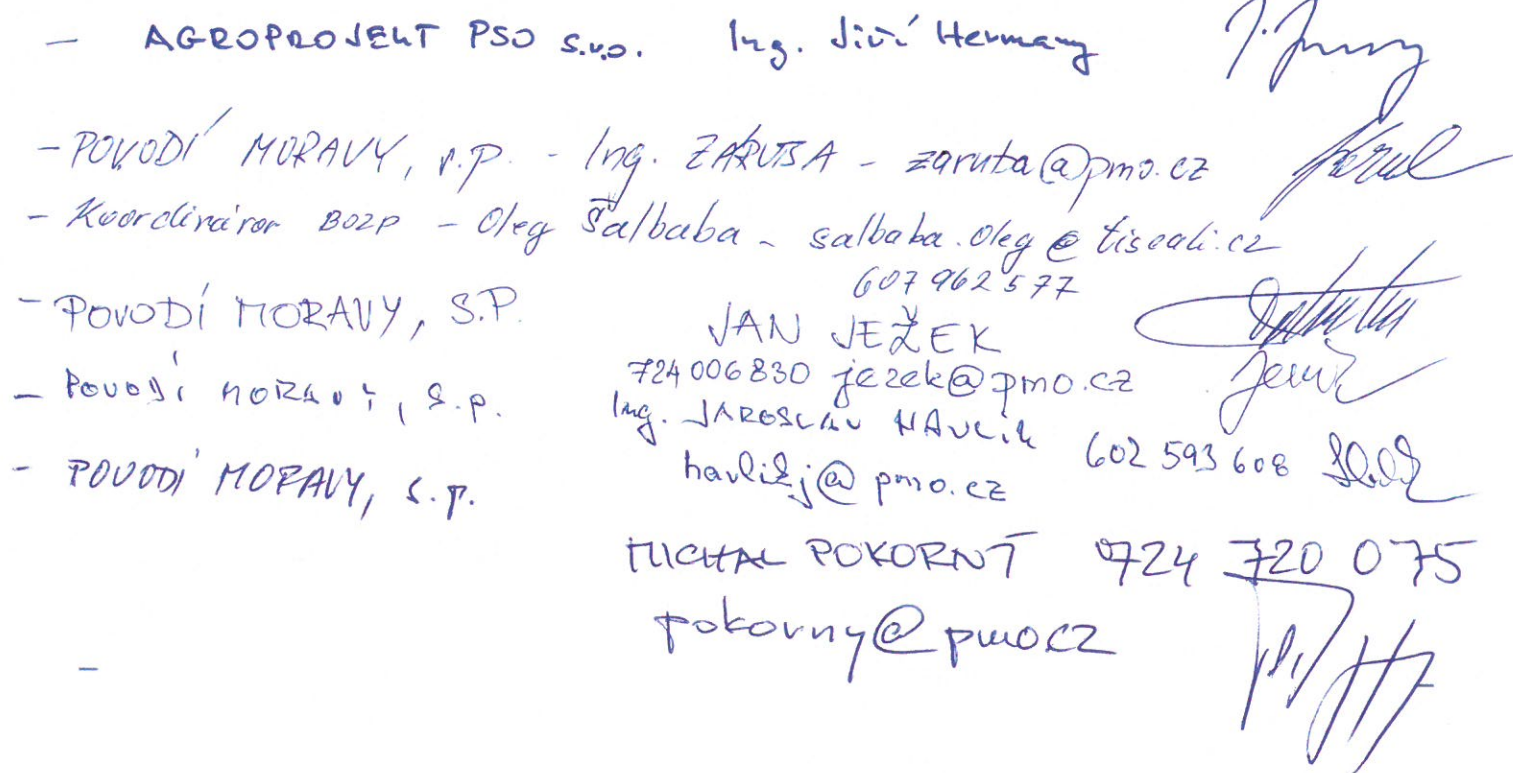 - AGROPROJEKT PSO s.r.o. Ing. Jiří Hermany
- POVODÍ MORAVY, s.p. - Ing. ZÁRUBA - zaruba@pmo.cz
- Koordinátor BOZP - Oleg Šalbaba - salbaba.oleg@tiscali.cz
607 962 577
- POVODÍ MORAVY, S.P. JAN JEŽEK
724 006 830 jezek@pmo.cz
- POVODÍ MORAVY, s.p. Ing. JAROSLAV HAVLÍK 602 593 608
havlikj@pmo.cz
- POVODÍ MORAVY, s.p.
MICHAL POKORNÝ 724 720 075
pokorny@pmo.cz
-